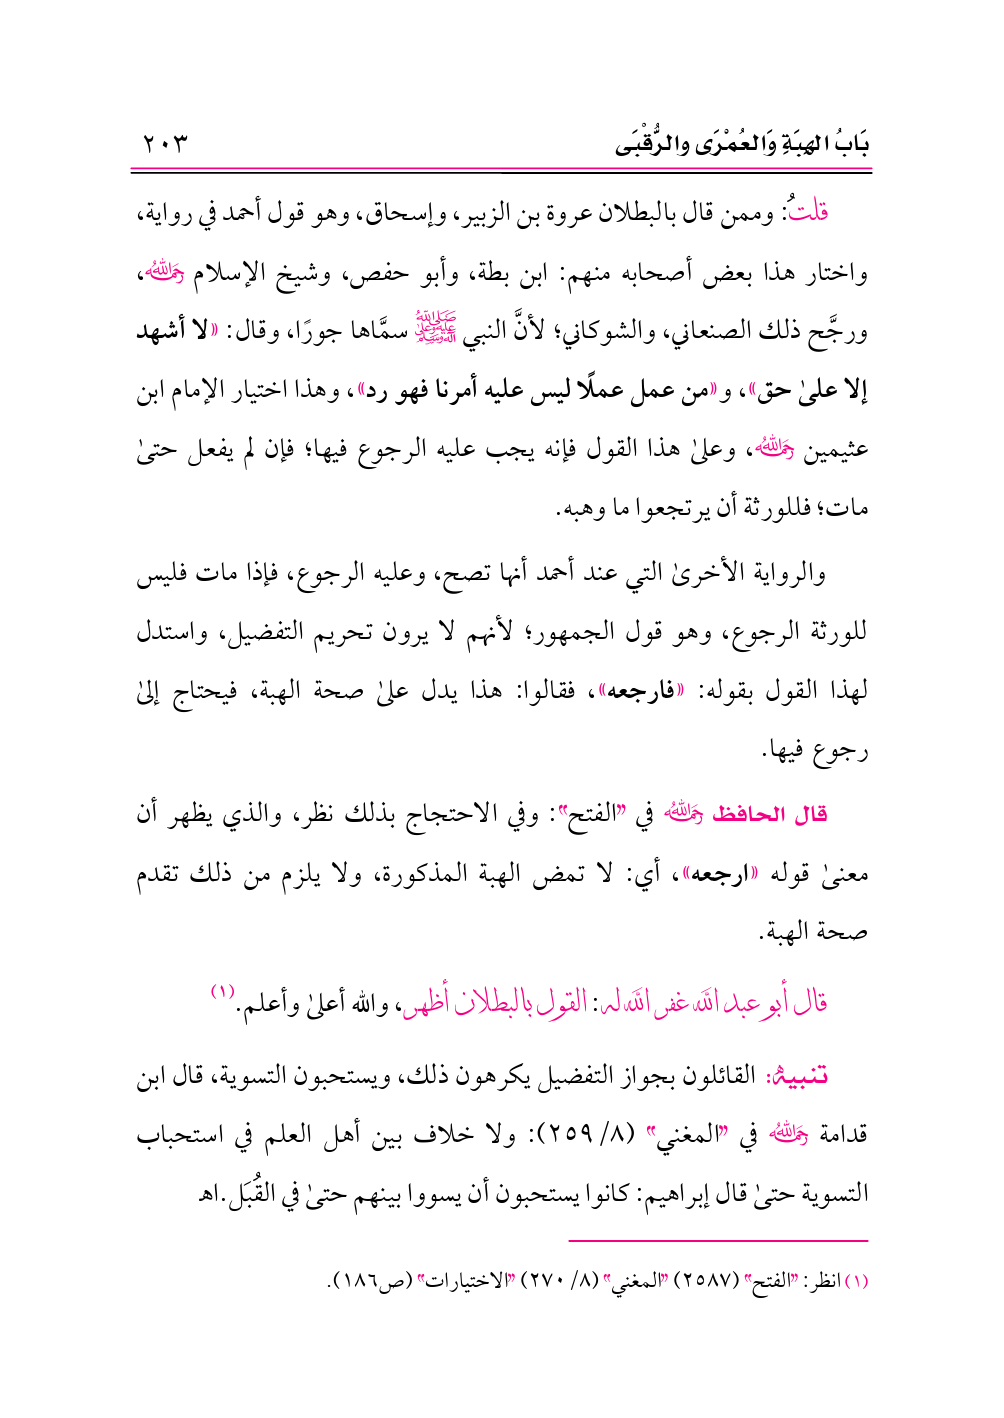 بَابُ الهِبَةِ وَالعُمْرَى والرُّقْبَى ٢٠٣
قلتُ: وممن قال بالبطلان عروة بن الزبير، وإسحاق، وهو قول أحمد في رواية،
واختار هذا بعض أصحابه منهم: ابن بطة، وأبو حفص، وشيخ الإسلام رحمه الله،
ورجَّح ذلك الصنعاني، والشوكاني؛ لأنَّ النبي ﷺ سمَّاها جورًا، وقال: «لا أشهد
إلا علىٰ حق»، و«من عمل عملًا ليس عليه أمرنا فهو رد»، وهذا اختيار الإمام ابن
عثيمين رحمه الله، وعلىٰ هذا القول فإنه يجب عليه الرجوع فيها؛ فإن لم يفعل حتىٰ
مات؛ فللورثة أن يرتجعوا ما وهبه.
والرواية الأخرىٰ التي عند أحمد أنها تصح، وعليه الرجوع، فإذا مات فليس
للورثة الرجوع، وهو قول الجمهور؛ لأنهم لا يرون تحريم التفضيل، واستدل
لهذا القول بقوله: «فارجعه»، فقالوا: هذا يدل علىٰ صحة الهبة، فيحتاج إلىٰ
رجوع فيها.
قال الحافظ رحمه الله في "الفتح": وفي الاحتجاج بذلك نظر، والذي يظهر أن
معنىٰ قوله «ارجعه»، أي: لا تمض الهبة المذكورة، ولا يلزم من ذلك تقدم
صحة الهبة.
قال أبو عبد الله غفر الله له: القول بالبطلان أظهر، والله أعلىٰ وأعلم.(١)
تنبيهٌ: القائلون بجواز التفضيل يكرهون ذلك، ويستحبون التسوية، قال ابن
قدامة رحمه الله في "المغني" (٨/ ٢٥٩): ولا خلاف بين أهل العلم في استحباب
التسوية حتىٰ قال إبراهيم: كانوا يستحبون أن يسووا بينهم حتىٰ في القُبَل.اهـ
(١) انظر: "الفتح" (٢٥٨٧) "المغني" (٨/ ٢٧٠) "الاختيارات" (ص١٨٦).